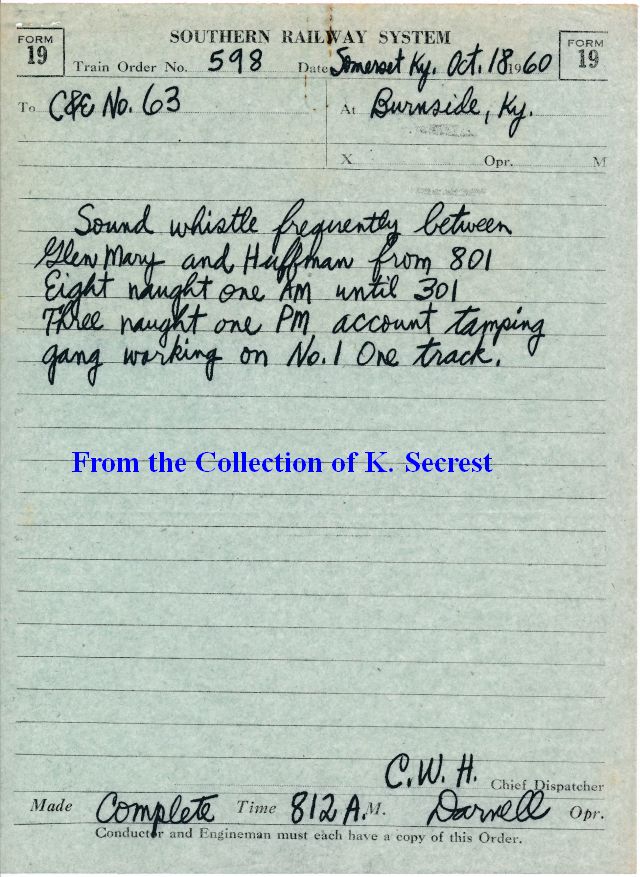 FORM 19
SOUTHERN RAILWAY SYSTEM
FORM 19
Train Order No. 598 Date Somerset Ky. Oct. 18 1960
To C&E No. 63 At Burnside, Ky.
X Opr. M
Sound whistle frequently between
Glen Mary and Huffman from 801
Eight naught one AM until 301
Three naught one PM account tamping
gang working on No. 1 One track.
From the Collection of K. Secrest
C. W. H. Chief Dispatcher
Made Complete Time 812 A.M. Darnell Opr.
Conductor and Engineman must each have a copy of this Order.